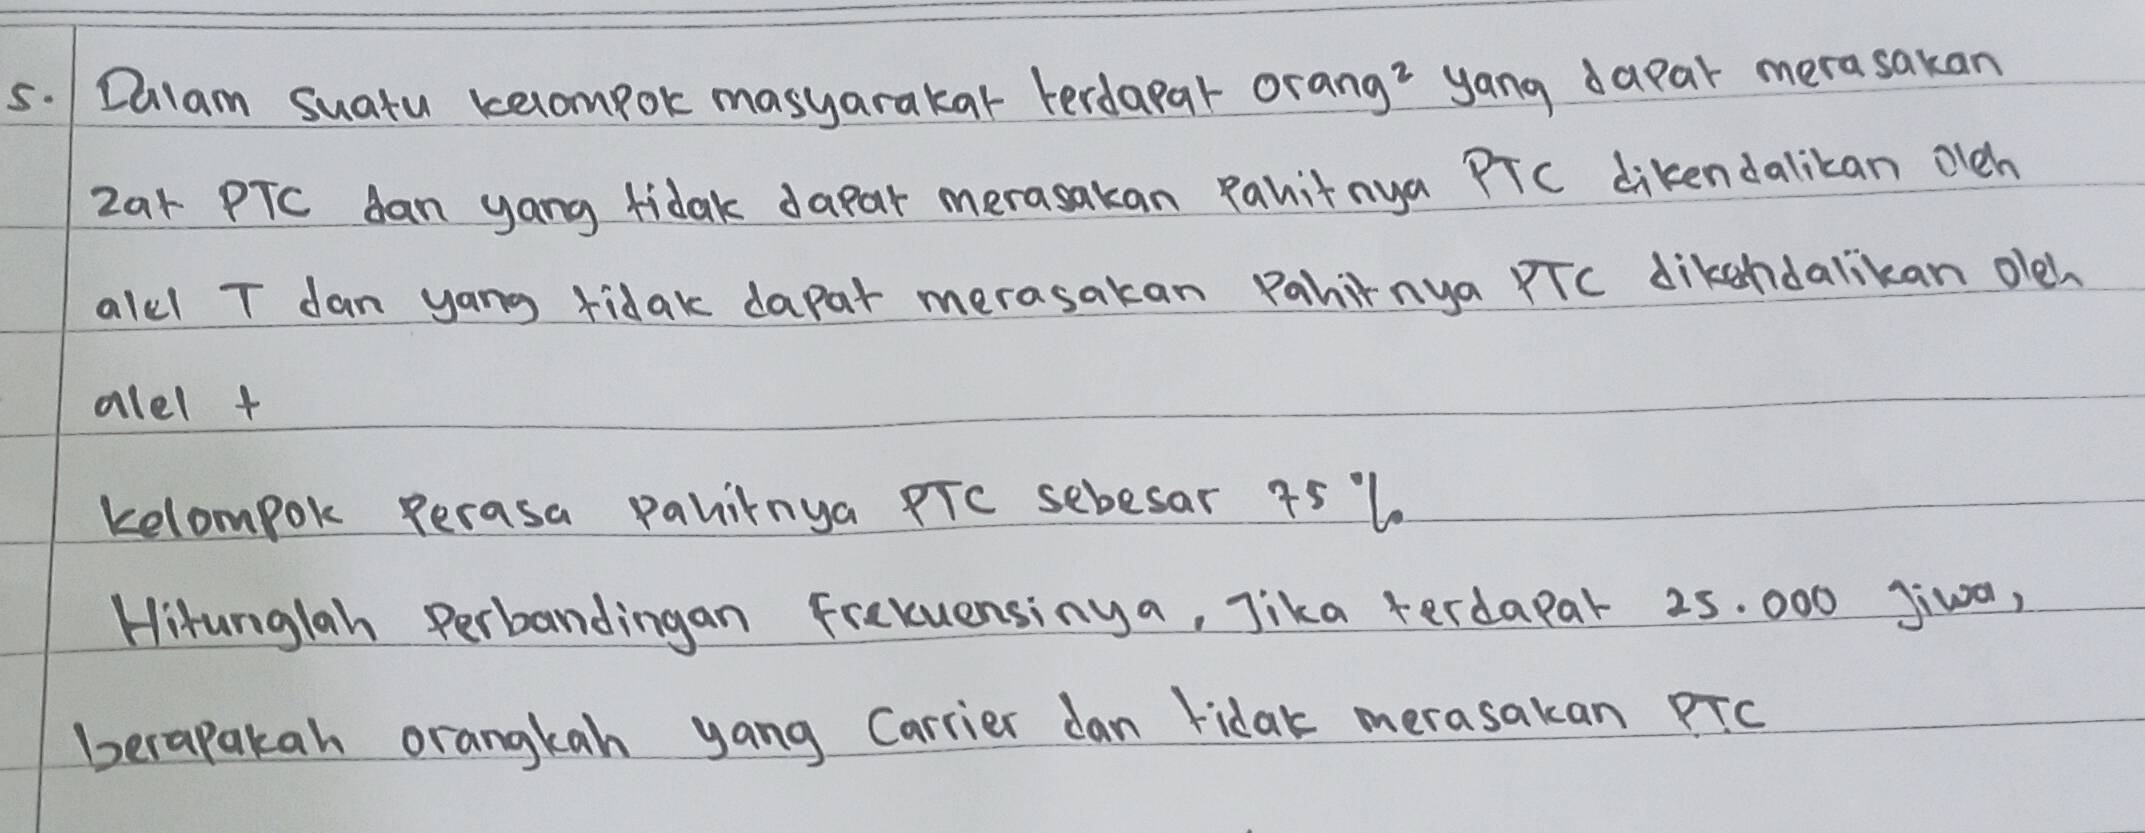 5. Dalam suatu kelompok masyarakat terdapat orang² yang dapat merasakan
zat PTC dan yang tidak dapat merasakan pahitnya PTC dikendalikan oleh
alel T dan yang tidak dapat merasakan pahitnya PTC dikendalikan oleh
alel t
Kelompok perasa pahitnya PTC sebesar 75 %
Hitunglah perbandingan frekuensinya, Jika terdapat 25.000 jiwa,
berapakah orangkah yang carrier dan tidak merasakan PTC